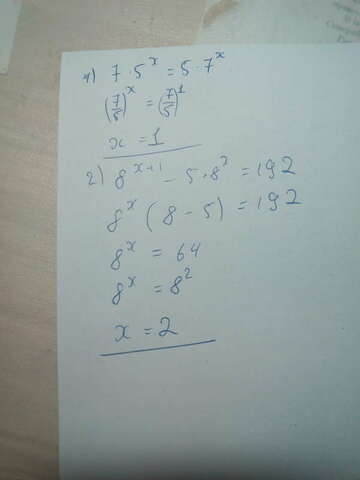 1) 7 · 5^x = 5 · 7^x
(7/5)^x = (7/5)^1
x = 1
2) 8^(x+1) - 5 · 8^x = 192
8^x (8 - 5) = 192
8^x = 64
8^x = 8^2
x = 2